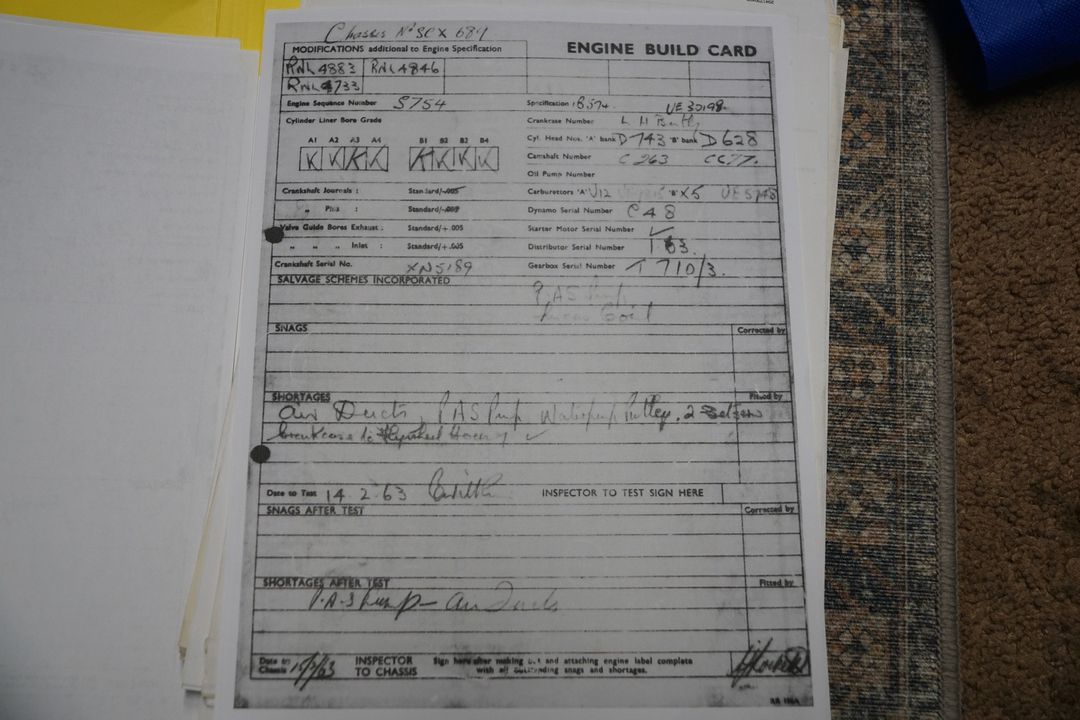 Chassis No SCX 689
MODIFICATIONS additional to Engine Specification
ENGINE BUILD CARD
RNL 4883 RNL 4846
RNL 4733
Engine Sequence Number S754 Specification UE 30198
Cylinder Liner Bore Grade Crankcase Number
A1 A2 A3 A4 B1 B2 B3 B4
K K K K K K K K
Cyl. Head Nos. 'A' bank D 743 'B' bank D 628
Camshaft Number C 263
Oil Pump Number
Crankshaft Journals : Standard/-.005 Carburettors 'A' 'B'
„ Pins : Standard/-.009 Dynamo Serial Number C 48
Valve Guide Bores Exhaust : Standard/+.005 Starter Motor Serial Number ✓
„ „ „ Inlet : Standard/+.005 Distributor Serial Number
Crankshaft Serial No. XN5189 Gearbox Serial Number T 710/3.
SALVAGE SCHEMES INCORPORATED
P.A.S Pump
Coil
SNAGS Corrected by
SHORTAGES Fitted by
Air Ducts, P.A.S Pump, Waterpump Pulley, 2
Crankcase to Flywheel ✓
Date to Test 14.2.63 INSPECTOR TO TEST SIGN HERE
SNAGS AFTER TEST Corrected by
SHORTAGES AFTER TEST Fitted by
P.A.S Pump - Air Ducts
Date to Chassis INSPECTOR TO CHASSIS Sign here after making out and attaching engine label complete with all outstanding snags and shortages.